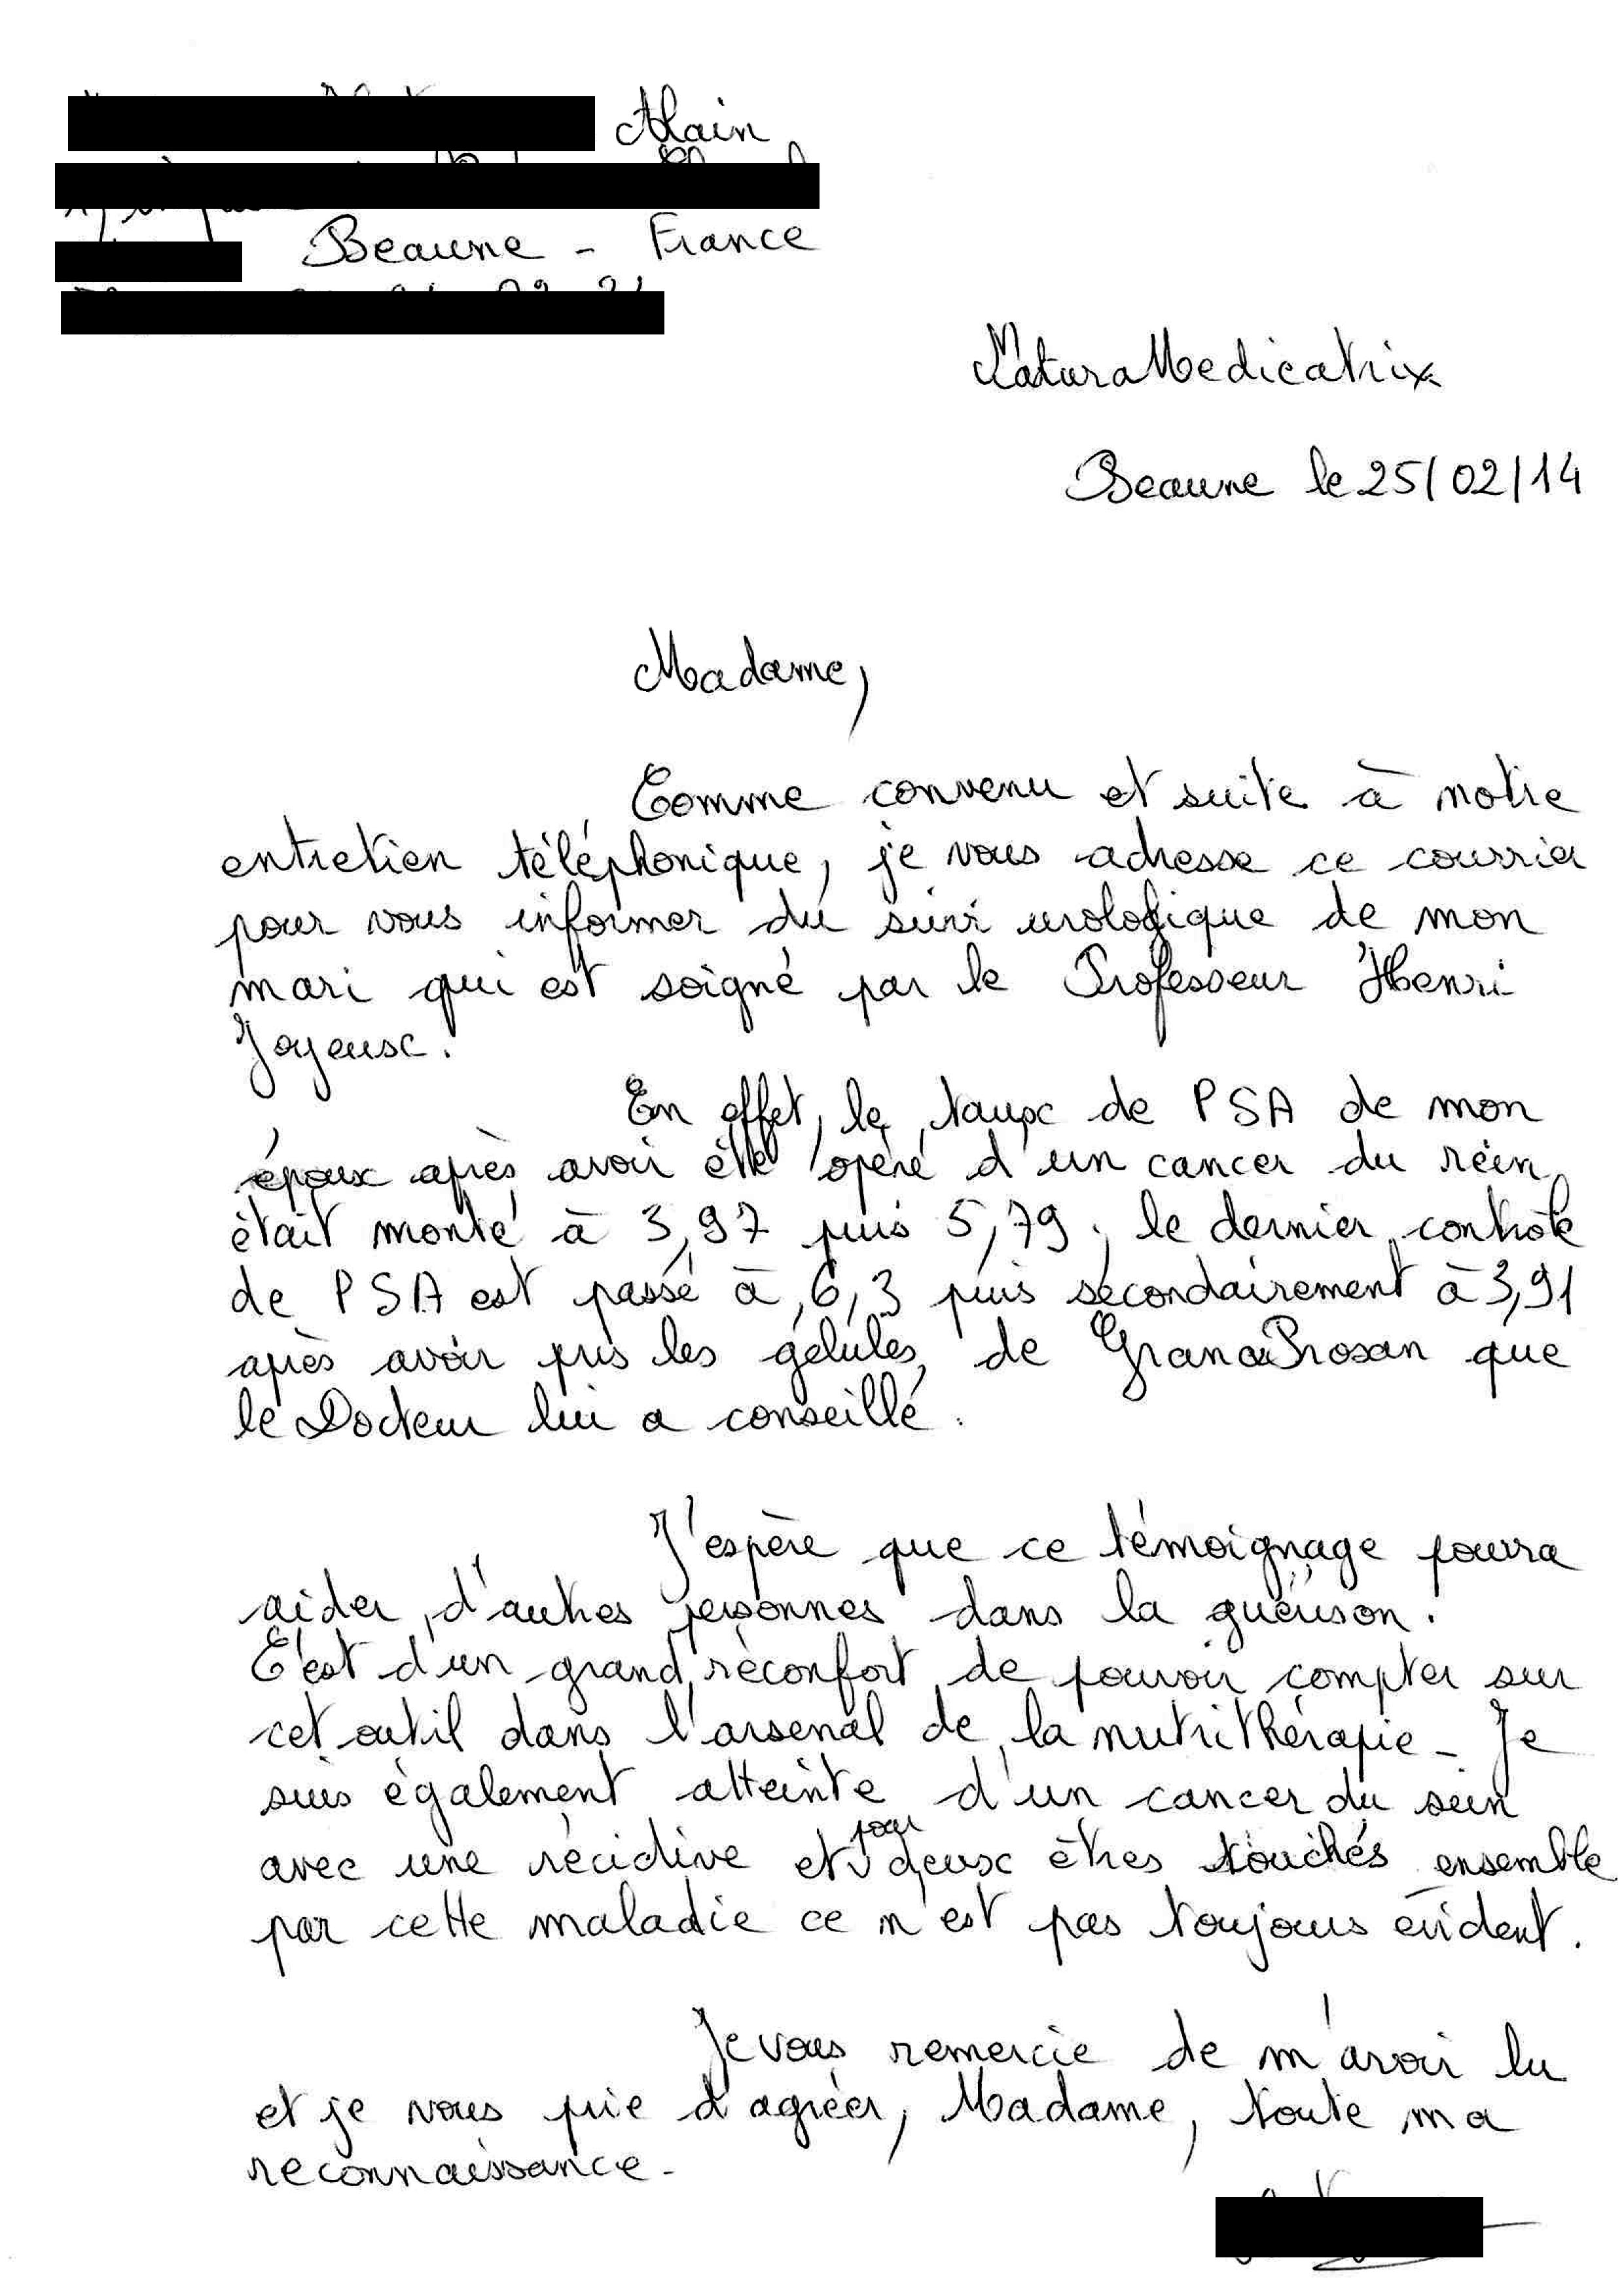 Alain
Beaune - France
NaturaMedicatrix
Beaune le 25/02/14
Madame,
Comme convenu et suite à notre
entretien téléphonique, je vous adresse ce courrier
pour vous informer du suivi urologique de mon
mari qui est soigné par le Professeur Henri
Joyeux.
En effet, le taux de PSA de mon
époux après avoir été opéré d'un cancer du rein
était monté à 3,97 puis 5,79. le dernier contrôle
de PSA est passé à 6,3 puis secondairement à 3,91
après avoir pris les gélules de GranaProsan que
le Docteur lui a conseillé.
J'espère que ce témoignage pourra
aider d'autres personnes dans la guérison.
C'est d'un grand réconfort de pouvoir compter sur
cet outil dans l'arsenal de la nutrithérapie - Je
suis également atteinte d'un cancer du sein
avec une récidive et pour deux êtres touchés ensemble
par cette maladie ce n'est pas toujours évident.
Je vous remercie de m'avoir lu
et je vous prie d'agréer, Madame, toute ma
reconnaissance -